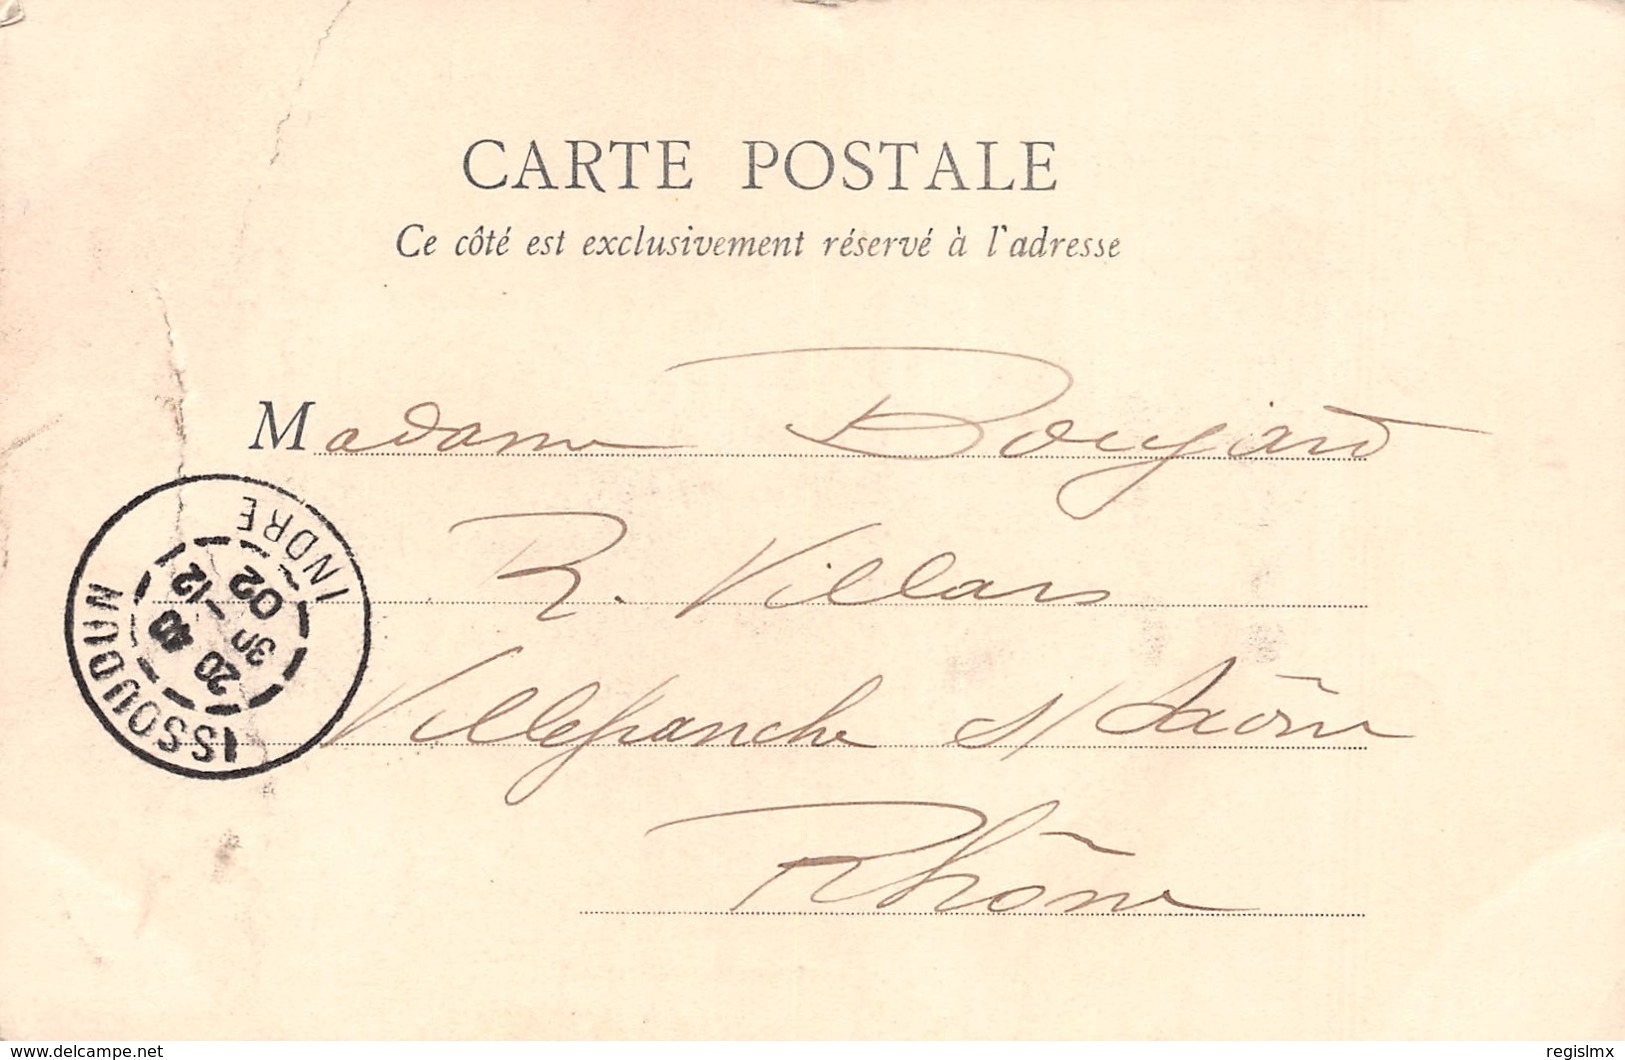 CARTE POSTALE
Ce côté est exclusivement réservé à l'adresse
Madame Boujard
R. Villars
Villefranche s/ Saône
Rhône
ISSOUDUN
INDRE
20
12
02
www.delcampe.net
regislmx